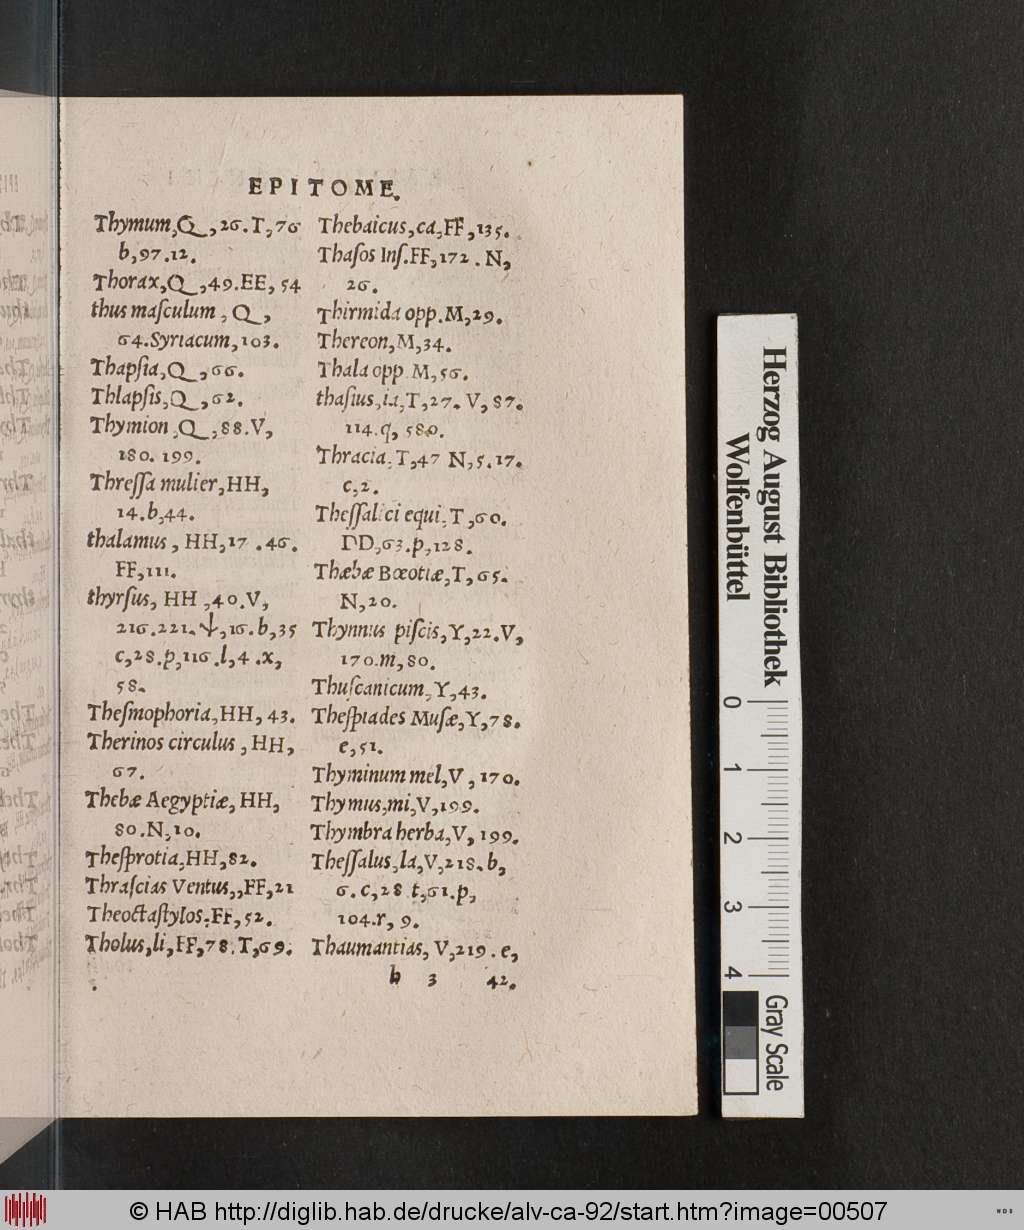 EPITOME.
Thymum, Q, 26. T, 76
b, 97. 12.
Thorax, Q, 49. EE, 54
thus maſculum, Q,
64. Syriacum, 103.
Thapſia, Q, 66.
Thlapſis, Q, 62.
Thymion, Q, 88. V,
180. 199.
Threſſa mulier, HH,
14. b, 44.
thalamus, HH, 17 . 46.
FF, 111.
thyrſus, HH, 40. V,
216. 221. ψ, 16. b, 35
c, 28. p, 116. l, 4. x,
58.
Theſmophoria, HH, 43.
Therinos circulus, HH,
67.
Thebæ Aegyptiæ, HH,
80. N, 10.
Theſprotia, HH, 82.
Thraſcias Ventus,, FF, 21
Theoctaſtylos. FF, 52.
Tholus, li, FF, 78. T, 69.
Thebaicus, ca, FF, 135.
Thaſos Inſ. FF, 172. N,
26.
Thirmida opp. M, 29.
Thereon, M, 34.
Thala opp. M, 56.
thaſius, ia, T, 27. V, 87.
114. q, 580.
Thracia, T, 47 N, 5. 17.
c, 2.
Theſſalici equi, T, 60.
DD, 63. p, 128.
Thæbæ Bœotiæ, T, 65.
N, 20.
Thynnus piſcis, Y, 22. V,
170. m, 80.
Thuſcanicum, Y, 43.
Theſpiades Muſæ, Y, 78.
e, 51.
Thyminum mel, V, 170.
Thymus, mi, V, 199.
Thymbra herba, V, 199.
Theſſalus, la, V, 218. b,
6. c, 28 t, 61. p,
104. r, 9.
Thaumantias, V, 219. e,
h 3 42.
Herzog August Bibliothek
Wolfenbüttel
0 1 2 3 4
Gray Scale
© HAB http://diglib.hab.de/drucke/alv-ca-92/start.htm?image=00507